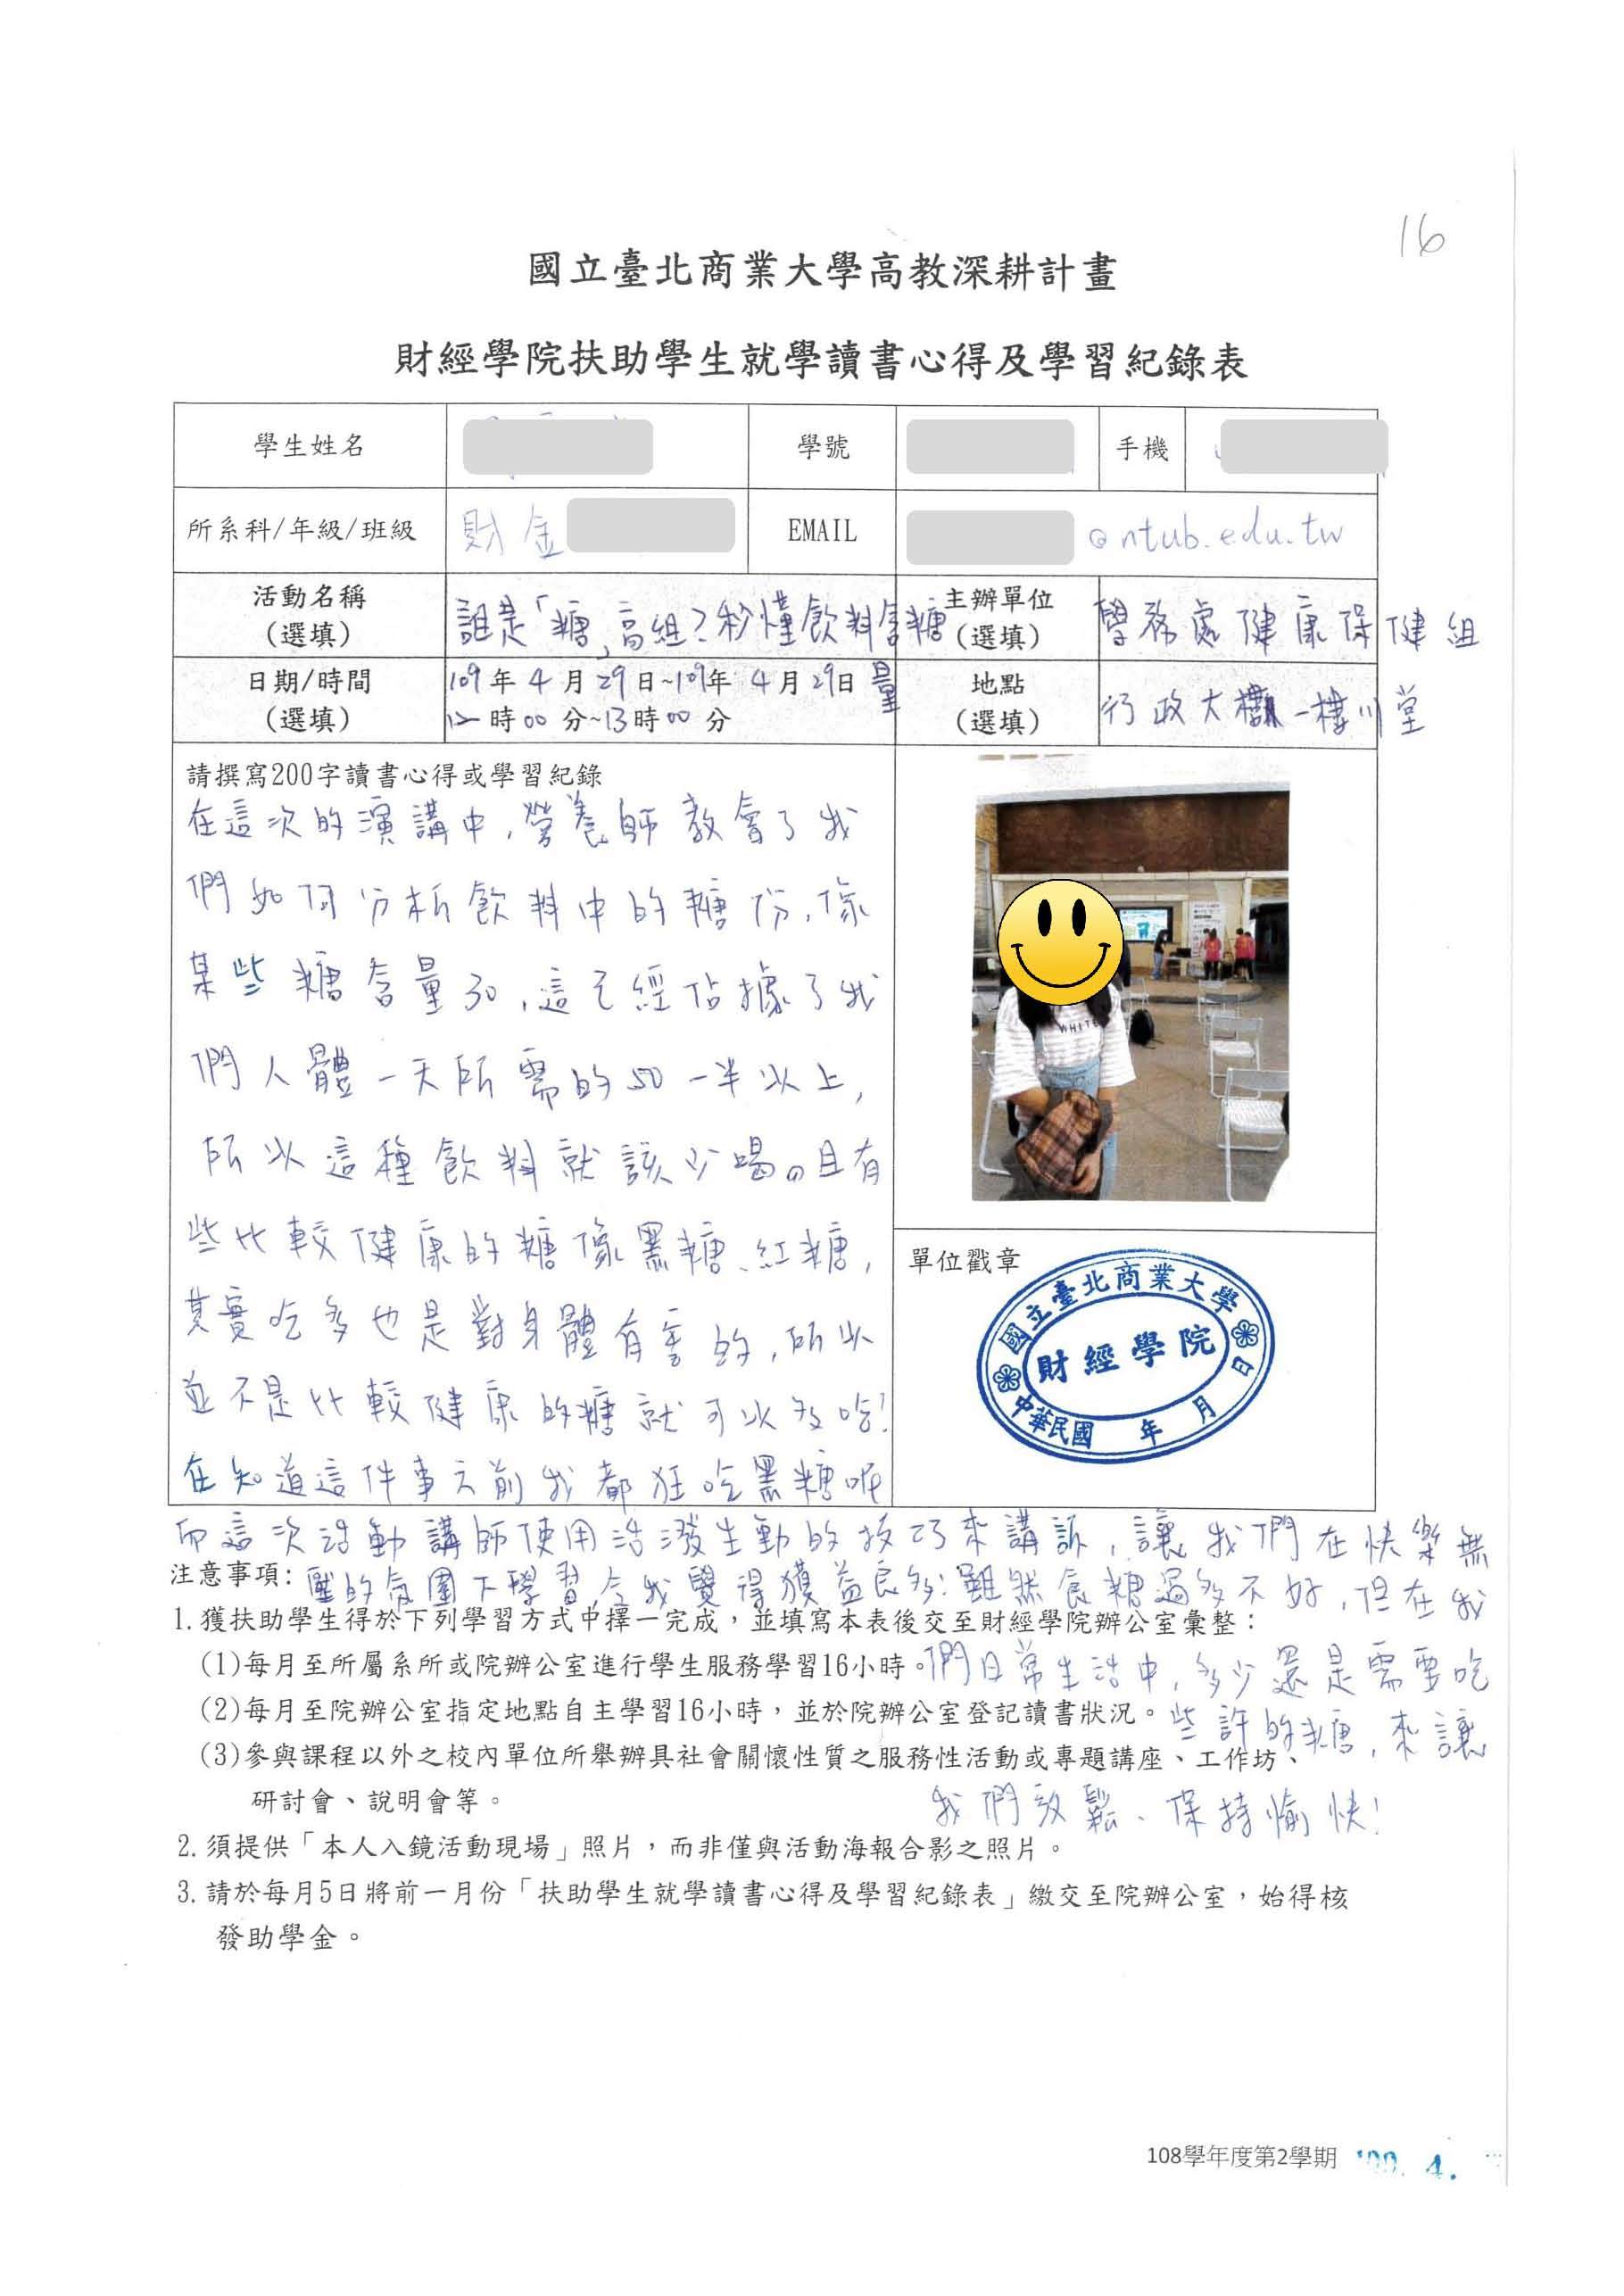 16
國立臺北商業大學高教深耕計畫
財經學院扶助學生就學讀書心得及學習紀錄表
學生姓名 學號 手機
所系科/年級/班級 財金 EMAIL @ntub.edu.tw
活動名稱 誰是「糖」高組?秒懂飲料含糖 主辦單位 學務處健康保健組
(選填) (選填)
日期/時間 109年4月29日~109年4月29日 量 地點 行政大樓一樓川堂
(選填) 12時00分~13時00分 (選填)
請撰寫200字讀書心得或學習紀錄
在這次的演講中,營養師教會了我
們如何分析飲料中的糖份,像
某些糖含量30,這已經佔據了我
們人體一天所需的50一半以上,
所以這種飲料就該少喝。且有
些比較健康的糖像黑糖、紅糖,
其實吃多也是對身體有害的,所以
並不是比較健康的糖就可以多吃!
在知道這件事之前我都狂吃黑糖呢
WHITE
單位戳章
國立臺北商業大學
財經學院
中華民國 年 月 日
而這次活動講師使用活潑生動的技巧來講訴,讓我們在快樂無
注意事項: 壓的氛圍下學習,令我覺得獲益良多!雖然食糖過多不好,但在我
1.獲扶助學生得於下列學習方式中擇一完成,並填寫本表後交至財經學院辦公室彙整:
(1)每月至所屬系所或院辦公室進行學生服務學習16小時。們日常生活中,多少還是需要吃
(2)每月至院辦公室指定地點自主學習16小時,並於院辦公室登記讀書狀況。些許的糖,來讓
(3)參與課程以外之校內單位所舉辦具社會關懷性質之服務性活動或專題講座、工作坊、
研討會、說明會等。 我們放鬆、保持愉快!
2.須提供「本人入鏡活動現場」照片,而非僅與活動海報合影之照片。
3.請於每月5日將前一月份「扶助學生就學讀書心得及學習紀錄表」繳交至院辦公室,始得核
發助學金。
108學年度第2學期